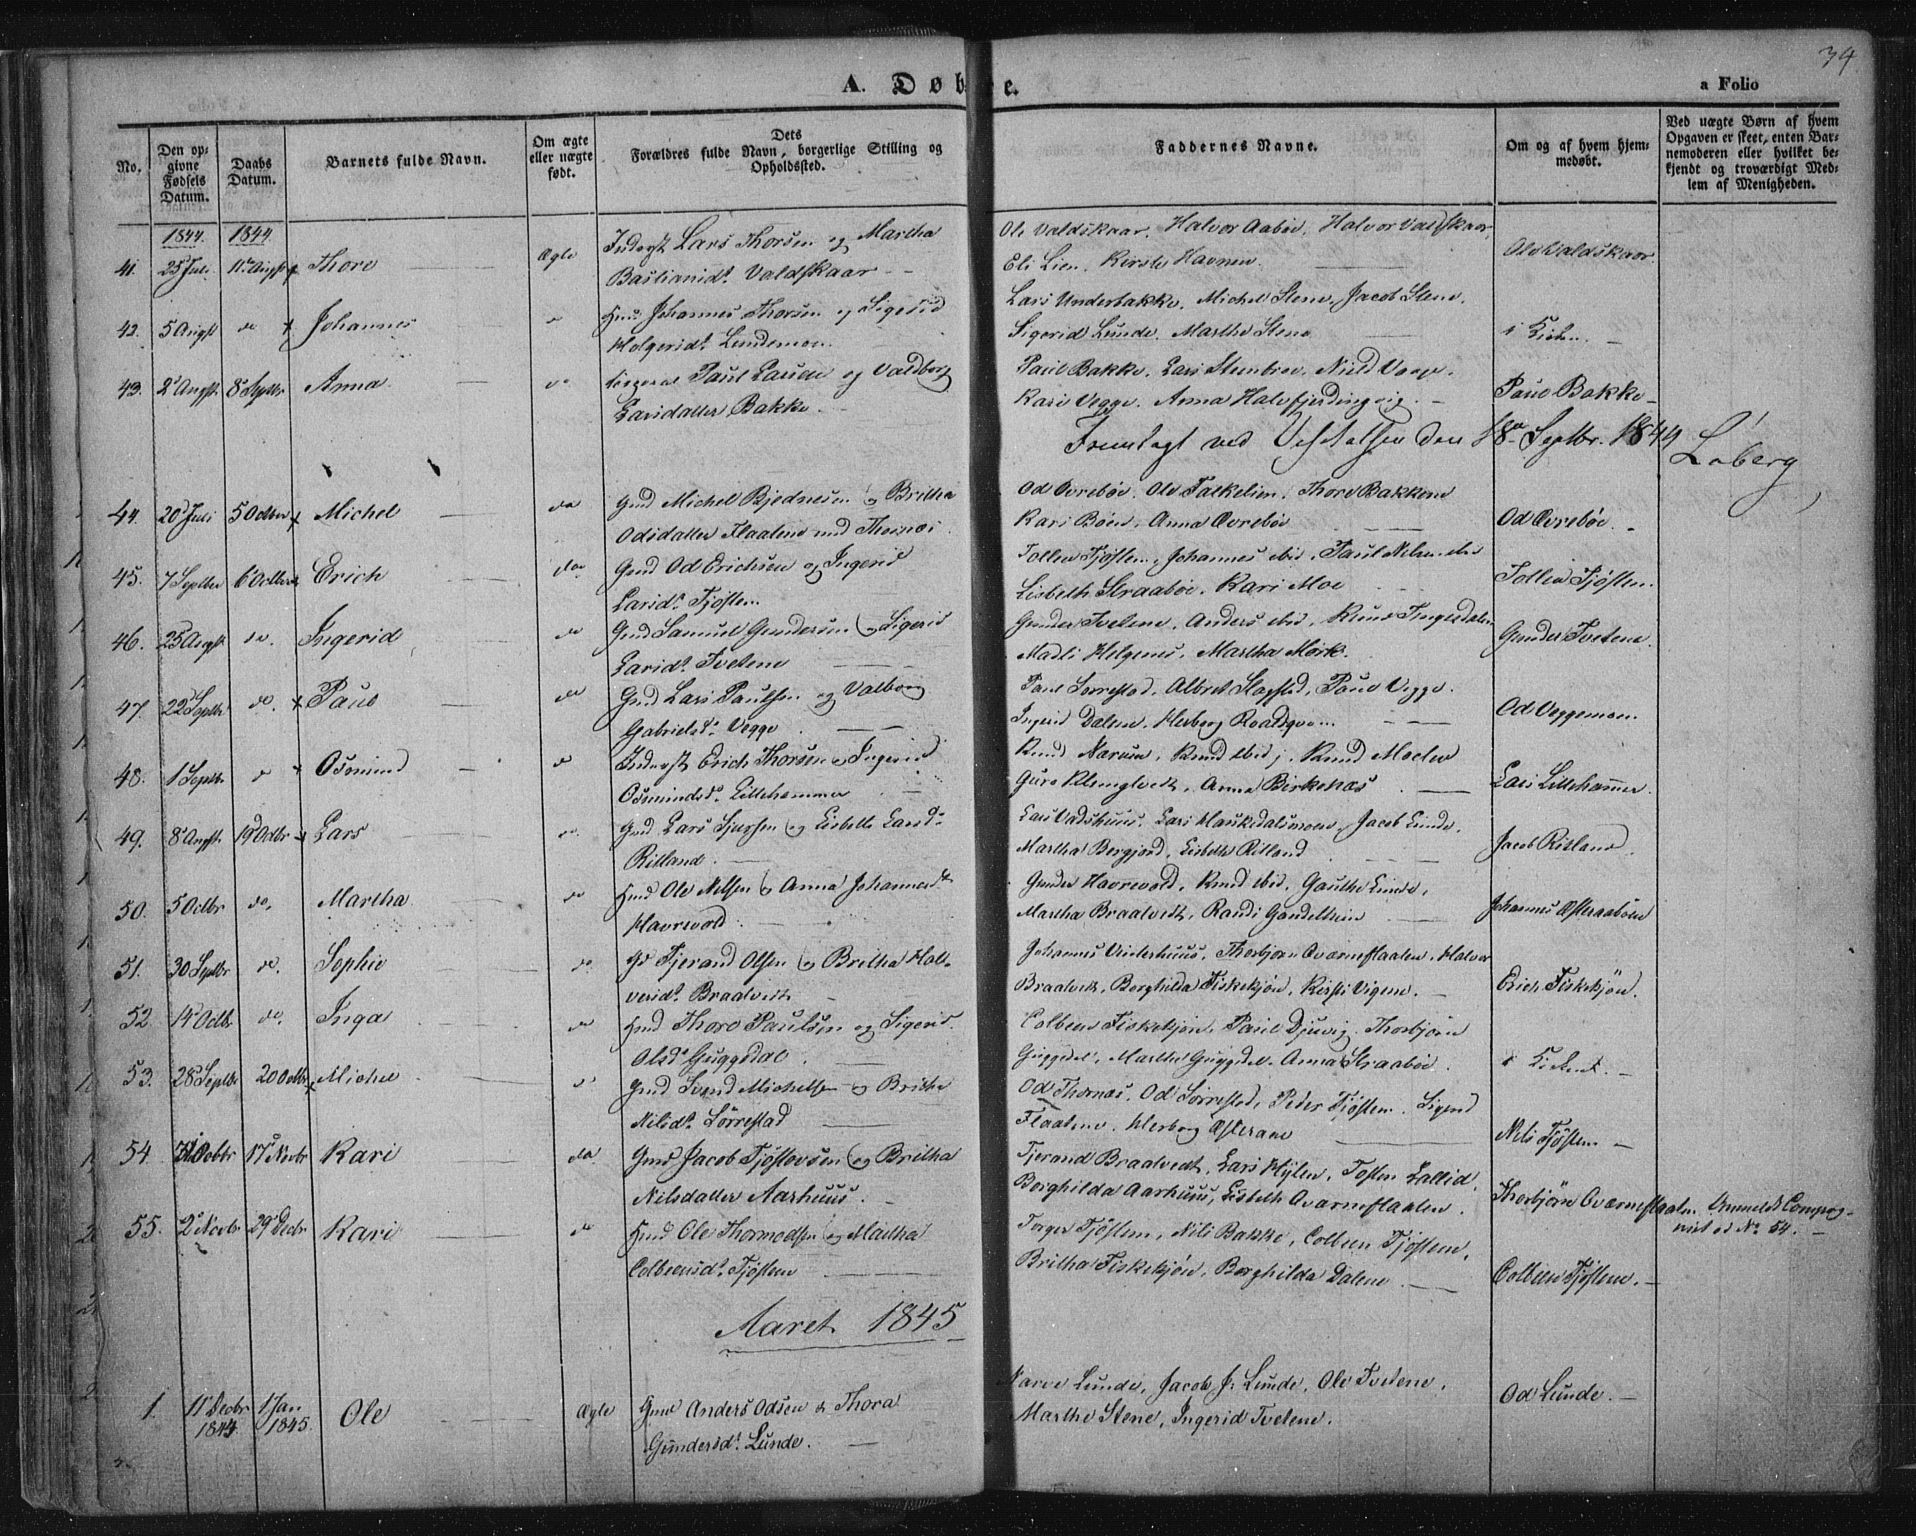 34
A. Døbte.
a Folio
No.
Den opgivne Fødsels Datum.
Daabs Datum.
Barnets fulde Navn.
Om ægte eller uægte født.
Dets Forældres fulde Navn, borgerlige Stilling og Opholdssted.
Faddernes Navne.
Om og af hvem hjemmedøbt.
Ved uægte Børn af hvem Opgaven er skeet, enten Barnemoderen eller hvilket bekjendt og troværdigt Medlem af Menigheden.
1844. 1844
41. 25 Juli 11 Augst Thore Ægte Inderst Lars Thorsen og Martha
Bastianidr. Valdskaar
Ole Valdskaar, Halvor Aabøe, Halvor Valdskaar
Eli Lien, Kirste Havnen.
Ole Valdskaar.
42. 5 Augst do Johannes do Hmd Johannes Thorsen og Sigerid
Holgeridr. Lundemoen
Lars Underbakke, Michel Stene, Jacob Stene,
Sigerid Lunde, Martha Stene
i Kirken
43. 2 Augst. 8 Septbr Anna do Paul Larsen og Valborg
Larsdatter Bakke.
Paul Bakke, Lars Steenbroe, Niels Vaage.
Kari Vegge, Anna Halvfjerdingvig.
Paul Bakke
Fremlagt ved Visitatsen den 18de Septbr. 1844
Løberg
44. 20 Juli 5 Octbr Michel do Gmd Michel Bjednesen og Britha
Odsdatter Flaatene med Thornæs
Od Øvrebøe, Ole Falkelien, Thore Bakkene
Kari Böen, Anna Øvrebøe
Od Øvrebøe.
45. 7 Septbr 6 Octbr Erich do Gmd Od Erichsen og Ingerid
Larsdr. Tjösten
Tollen Tjösten, Johannes ibid, Paul Nilsen ibd
Lisbeth Straabøe, Kari Moe
Tollen Tjösten.
46. 25 Augst do. Ingerid do Gmd Samuel Gundersen og Sigerid
Larsdr. Tvetene
Gunder Tvetene, Anders ibid, Knud Tngesdalen
Madli Helgenes, Martha Mørk.
Gunder Tvetene
47. 22 Septbr do. Paul do Gmd Lars Paulsen og Valborg
Gabrielsdr. Vegge
Paul Sørrestad, Albret Slagstad, Paul Vegge.
Ingerid Dalene, Herborg Roaldqvam
Od Veggemoen.
48. 1 Septbr do Osmund do Inderst Erich Thorsen og Ingerid
Osmundsdr. Lillehammer
Knud Narveson, Knud ibid, Knud Moelen
Guro Klungtvedt, Anna Birkenæs
Lars Lillehammer.
49. 8 Augst. 19 Octbr Lars do. Gmd Lars Sjursen og Lisbeth Larsdr.
Ritland.
Lars Vadshuus, Lars Haukedalsmoen, Jacob Lunde.
Martha Bergjord, Lisbeth Ritland
Jacob Ritland.
50. 5 Octbr do. Martha do Hmd Ole Nilsen og Anna Johannesdr.
Havrevold.
Gunder Havrevold, Knud ibid, Gauthe Lunde,
Martha Braatvedt, Randi Gandelheim
Johannes Østeraabøen
51. 30 Septbr do. Sophie do Gd Tjerand Olsen og Britha Halvorsdr.
Braatvedt
Johannes Vinterhuus, Thorbjørn Qvarneflaaten, Halvor
Braatvedt, Borghilda Fiskekjön, Kirsti Vigene.
Erich Fiskekjön.
52 14 Octbr do. Inga do Hmd Thore Paulsen og Sigerid
Olsdr. Guggedal
Colbeen Fiskekjön, Paul Djuvig, Thorbjörn
Guggedal, Martha Guggedal, Anna Straabøe.
i Kirken
53. 28 Septbr 20 Octbr Michel do Gmd Svend Michelsen og Britha
Nilsdr. Lörrestad
Od Thornæs, Od Sørrestad, Peder Tjösten, Sigrid
Flaatene, Herborg Østeraae
Nils Tjösten
54. 31 Octbr 17 Novbr Kari do Gmd Jacob Tjöstovsen og Britha
Nilsdatter Aarhuus.
Tjerand Braatvedt, Lars Hylen, Tosten Lallid,
Borghilda Aarhuus, Lisbeth Qvarneflaaten.
Thorbjörn Qvarneflaaten
55. 2 Novbr 29 Decbr Kari do Hmd Ole Thormodsen og Martha
Colbeensdr. Tjösten
Torger Tjösten, Nils Bakke, Colbeen Tjöstene,
Britha Fiskekjön, Borghilda Dalene
Colbeen Tjöstene.
No. 54.
Aaret 1845
1. 11 Decbr 1844 1 Jan 1845. Ole Ægte Gmd Anders Odsen & Thora
Gundersdr. Lunde.
Narve Lunde, Jacob J. Lunde, Ole Tvetene,
Martha Stene, Ingerid Tvetene.
Od Lunde.